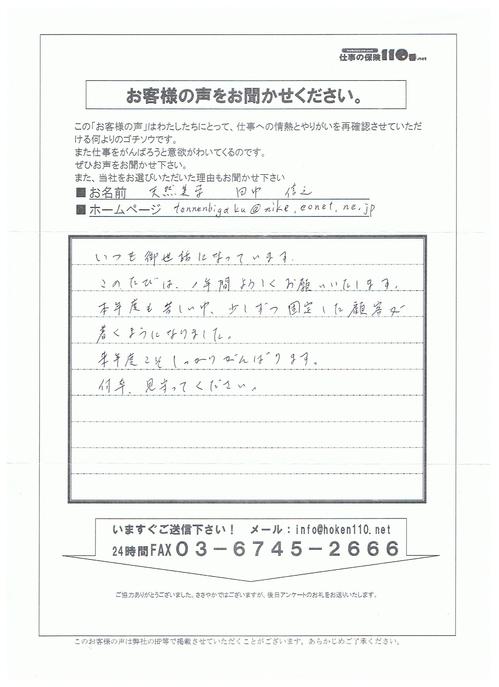 仕事の保険110番.net
お客様の声をお聞かせください。
この「お客様の声」はわたしたちにとって、仕事への情熱とやりがいを再確認させていただ
ける何よりのゴチソウです。
また仕事をがんばろうと意欲がわいてくるのです。
ぜひお声をお聞かせ下さい。
また、当社をお選びいただいた理由もお聞かせ下さい
■お名前 天然美学 田中
■ホームページ tennenbigaku@nike.eonet.ne.jp
いつも御世話になっています。
このたびは、1年間よろしくお願いいたします。
本年度も苦しい中、少しずつ固定した顧客が
着くようになりました。
来年度こそしっかりがんばります。
何卒、見守ってください。
いますぐご送信下さい! メール:info@hoken110.net
24時間FAX03-6745-2666
ご協力ありがとうございました。ささやかではございますが、後日アンケートのお礼をお送りいたします。
このお客様の声は弊社のHP等で掲載させていただくことがございます。あらかじめご了承ください。